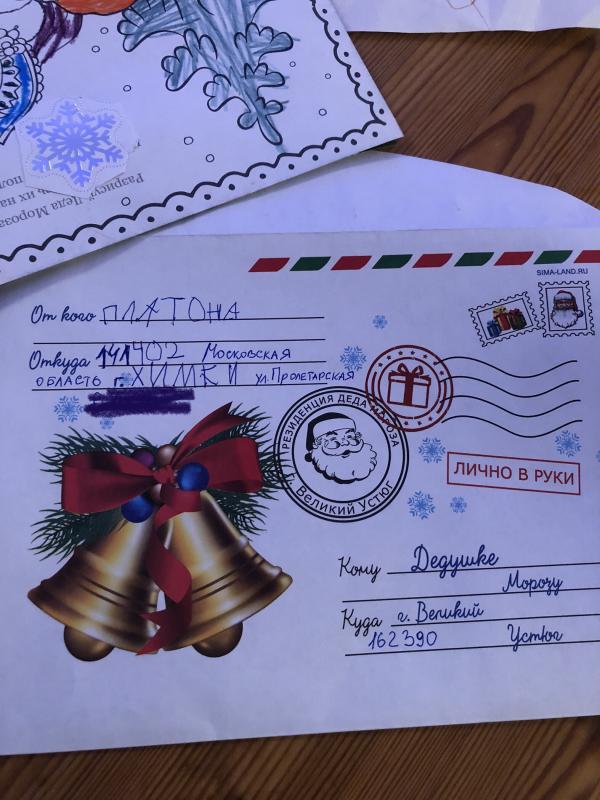 Разрисуй Деда Мороза
их на
SIMA-LAND.RU
От кого ПЛАТОНА
Откуда 141402 Московская
ОБЛАСТЬ г. ХИМКИ ул. Пролетарская
РЕЗИДЕНЦИЯ ДЕДА МОРОЗА
Великий Устюг
ЛИЧНО В РУКИ
Кому Дедушке
Морозу
Куда г. Великий
162390 Устюг